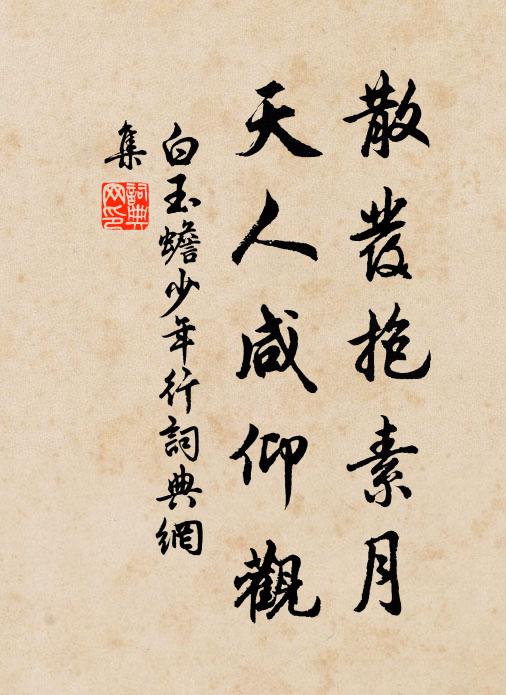 散發抱素月
天人咸仰觀
白玉蟾少年行詞典網
集
詞典
网印